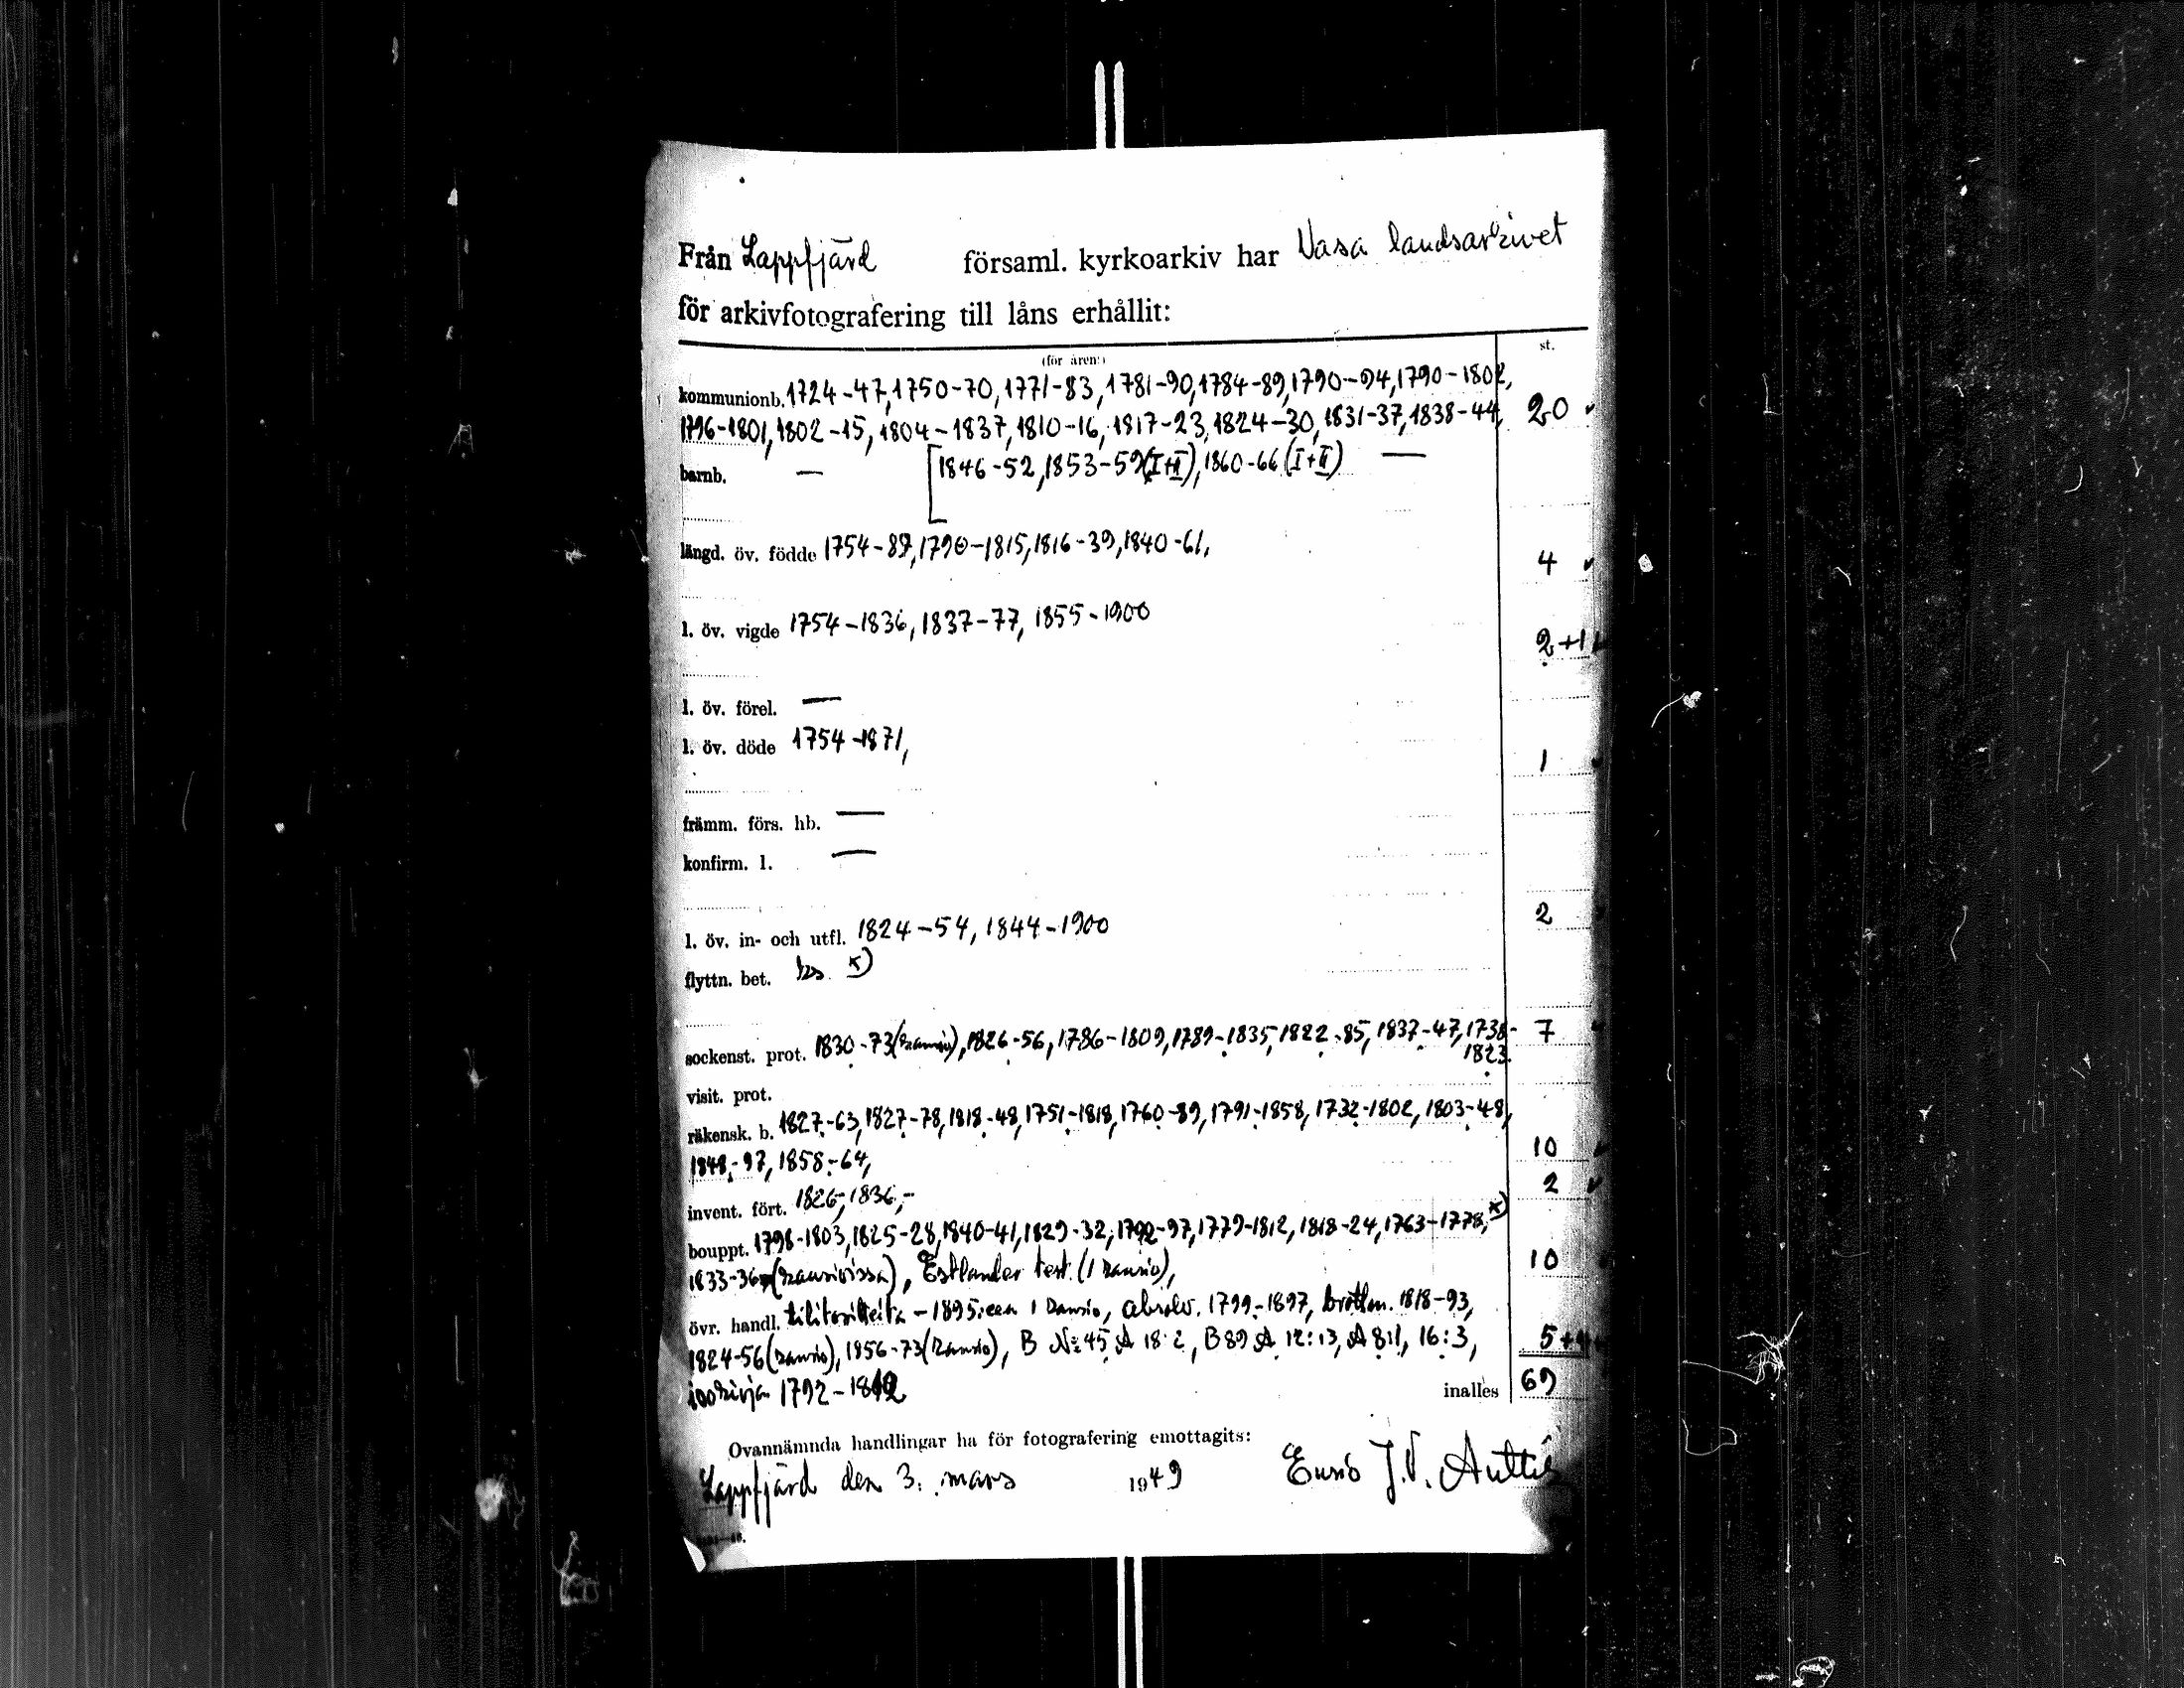 Från Lappfjärd församl. kyrkoarkiv har Vasa landsarkivet
för arkivfotografering till låns erhållit:
(för åren:) st.
kommunionb. 1724-47, 1750-70, 1771-83, 1781-90, 1784-89, 1790-94, 1790-1802,
1796-1801, 1802-15, 1804-1837, 1810-16, 1817-23, 1824-30, 1831-37, 1838-44, 20
barnb. — [1846-52, 1853-59 (I+II), 1860-66 (I+II) —
längd. öv. födde 1754-89, 1790-1815, 1816-39, 1840-61, 4
l. öv. vigde 1754-1836, 1837-77, 1855-1900 2+1
l. öv. förel. —
l. öv. döde 1754-1871, 1
främm. förs. hb. —
konfirm. l. —
l. öv. in- och utfl. 1824-54, 1844-1900 2
flyttn. bet. x)
sockenst. prot. 1830-73 (kansio), 1826-56, 1786-1809, 1789-1835, 1822-85, 1837-47, 1738- 7
1823.
visit. prot.
räkensk. b. 1827-63, 1827-78, 1818-48, 1751-1818, 1760-89, 1791-1858, 1732-1802, 1803-48,
1848-97, 1858-64, 10
invent. fört. 1826, 1836,- 2
bouppt. 1798-1803, 1825-28, 1840-41, 1829-32, 1792-97, 1779-1812, 1818-24, 1763-1778, x)
1833-36 (kansioissa), Estlander test. (1 kansio), 10
övr. handl. tilitositteita -1895:een 1 kansio, absolv. 1799-1897, brottm. 1818-93,
1824-56 (kansio), 1856-73 (kansio), B №45 A 18:2, B 89 A 12:13, A 8:1, 16:3, 5+4
1792-1812 inalles 69
Ovannämnda handlingar ha för fotografering emottagits:
Lappfjärd den 3. mars 1949 J.V.